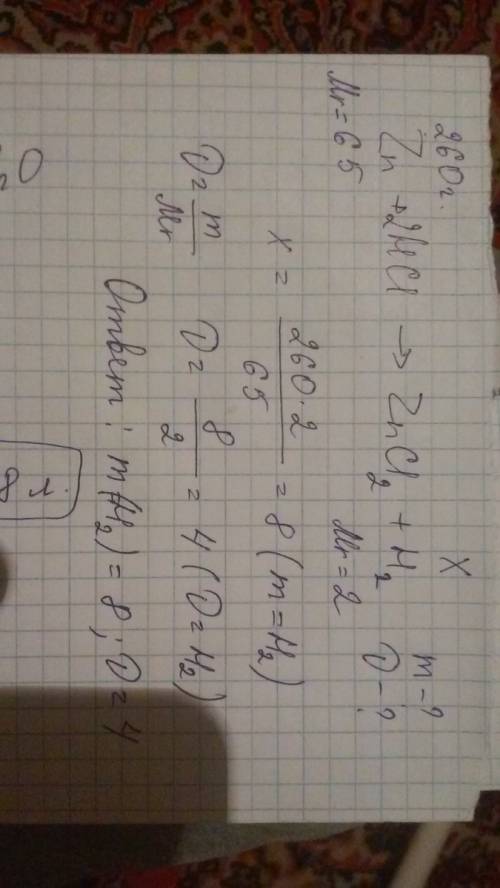 260г. X m-?
Zn + 2HCl → ZnCl2 + H2 D-?
Mr=65 Mr=2
x = 260·2/65 = 8 (m=H2)
D= m/Mr D= 8/2 = 4 (D=H2)
Ответ: m(H2)=8; D=4